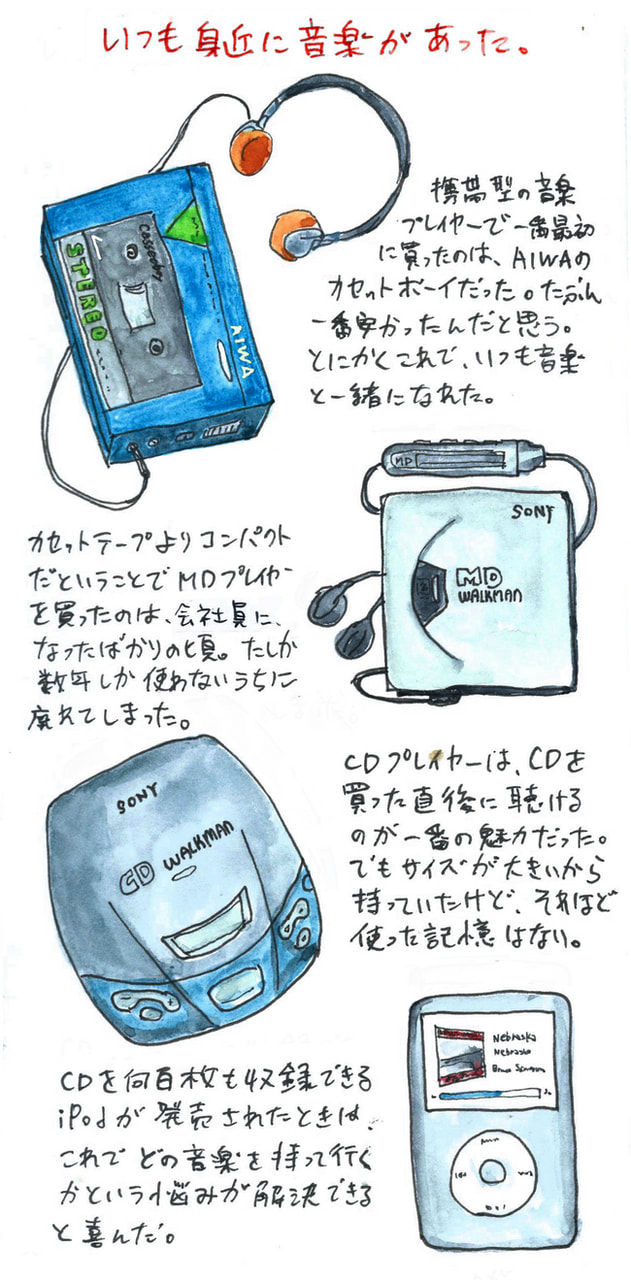 いつも身近に音楽があった。
携帯型の音楽
プレイヤーで一番最初
に買ったのは、AIWAの
カセットボーイだった。たぶん
一番安かったんだと思う。
とにかくこれで、いつも音楽
と一緒になれた。
Cassette
STEREO
AIWA
MD
SONY
MD
WALKMAN
カセットテープよりコンパクト
だということでMDプレイヤー
を買ったのは、会社員に、
なったばかりの頃。たしか
数年しか使わないうちに
廃れてしまった。
SONY
CD WALKMAN
CDプレイヤーは、CDを
買った直後に聴ける
のが一番の魅力だった。
でもサイズが大きいから
持っていたけど、それほど
使った記憶はない。
CDを何百枚も収録できる
iPodが発売されたときは、
これでどの音楽を持って行く
かという悩みが解決できる
と喜んだ。
Nebraska
Nebraska
Bruce